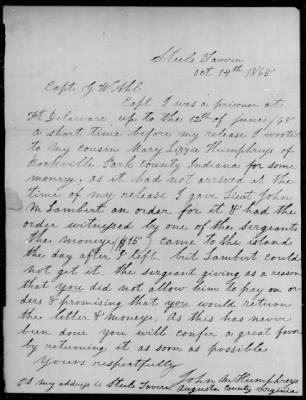 Steels Tavern
Oct 14th 1865
Capt. G W Ahl
Capt. I was a prisoner at
Ft Delaware up to the 12th of june/65
a short time before my release I wrote
to my cousin Mary Lizzie Humphreys of
Rockville Park County Indiana for some
money. as it had not arrived at the
time of my release I gave Lieut John
M Lambert an order for it & had the
order witnesed by one of the sergeants
the moneye ($15) came to the island
the day after I left. but Lambert could
not get it. the sergeant giving as a reason
that you did not allow him to pay on or-
ders & promising that you would return
the letter & moneye. As this has never
been done you will confer a great favor
by returning it as soon as possible
Yours respectfully
John M Humphreys
PS My addres is Steels Tavern Augusta County Virginia